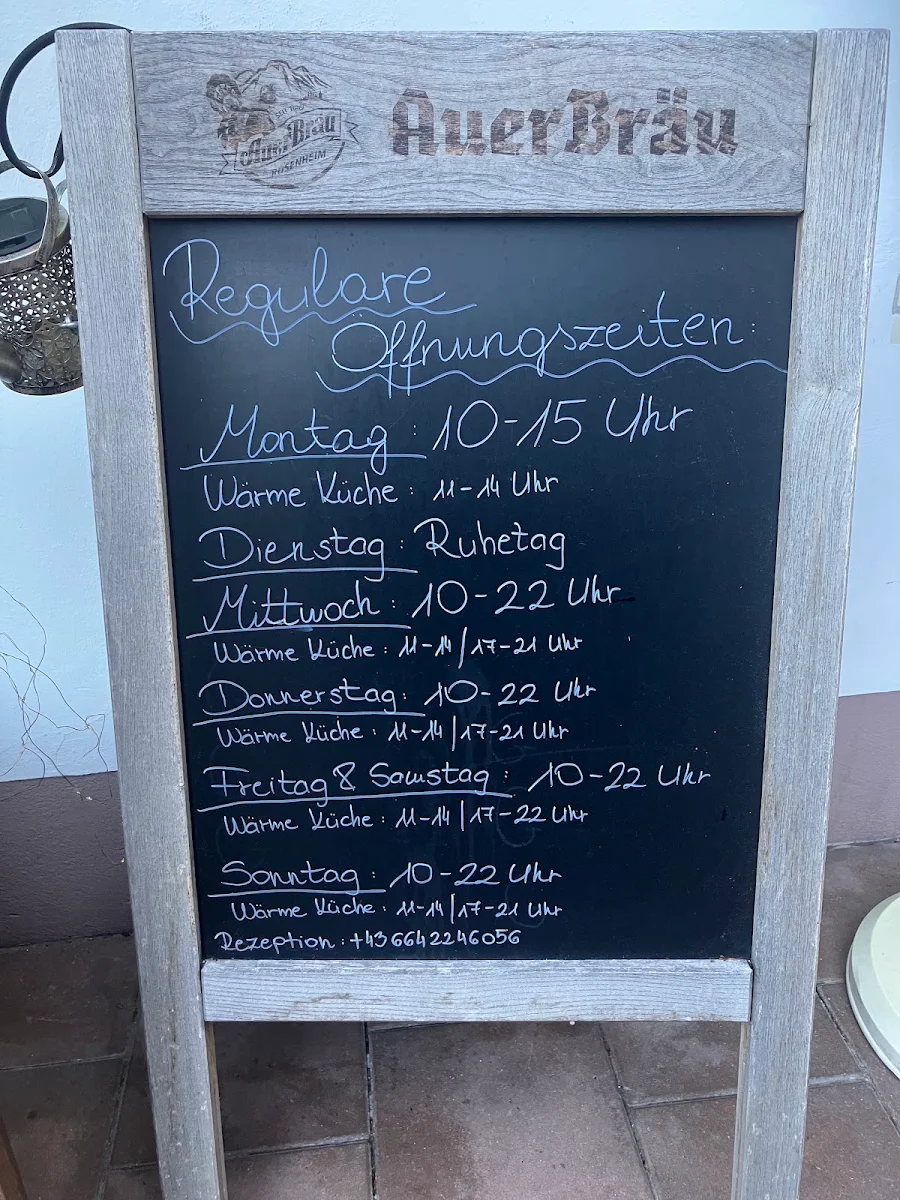 SEIT 1887
AuerBräu
ROSENHEIM
AuerBräu
Regulare
Öffnungszeiten:
Montag: 10-15 Uhr
Wärme Küche: 11-14 Uhr
Dienstag: Ruhetag
Mittwoch: 10-22 Uhr
Wärme Küche: 11-14/17-21 Uhr
Donnerstag: 10-22 Uhr
Wärme Küche: 11-14|17-21 Uhr
Freitag & Samstag: 10-22 Uhr
Wärme Küche: 11-14|17-22 Uhr
Sonntag: 10-22 Uhr
Wärme Küche: 11-14|17-21 Uhr
Rezeption: +436642246056